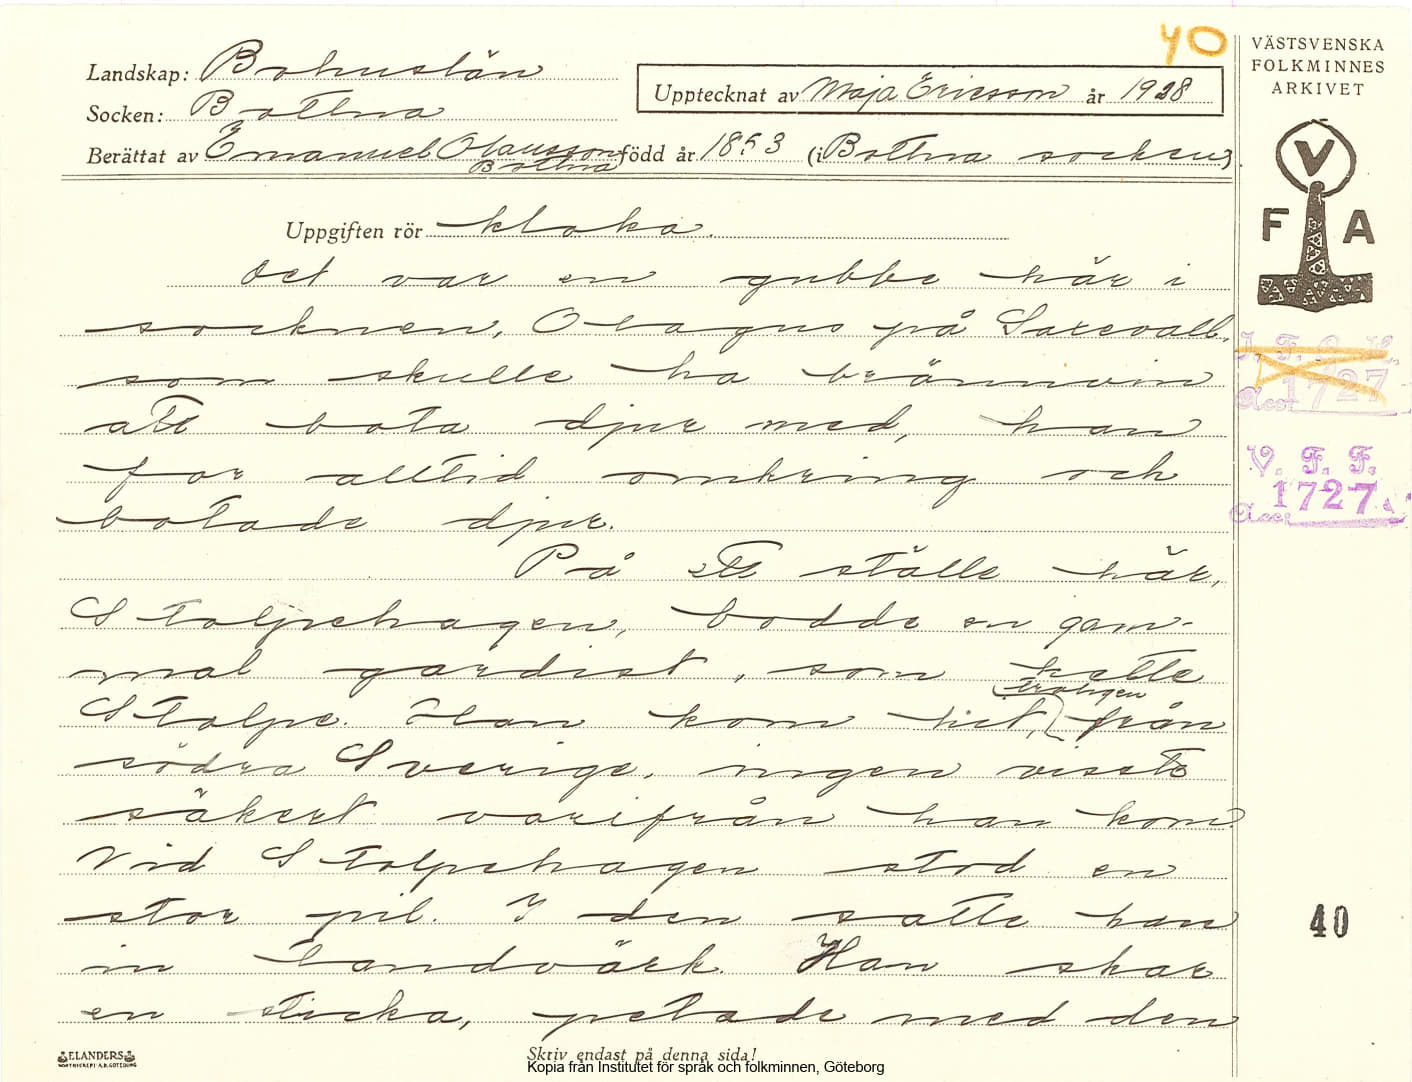 40
VÄSTSVENSKA
FOLKMINNES
ARKIVET
Landskap: Bohuslän
Upptecknat av Maja Ericsson år 1928
Socken: Bottna
Berättat av Emanuel Olausson född år 1853 (i Bottna socken)
Bottna
V
F A
Uppgiften rör kloka.
Det var en gubbe här i
socknen, Olagus på
som skulle ha brännvin
att bota djur med, han
for alltid omkring och
botade djur.
På ett ställe här,
Stolpehagen, bodde en gam-
mal gardist, som hette
troligen
Stolpe. Han kom hit, från
södra Sverige, ingen visste
säkert varifrån han kom.
Vid Stolpehagen stod en
stor pil. I den satte han
in tandvärk. Han skar
en sticka, petade med den
1727
Acc.
V. F. F.
1727
Acc.
40
ELANDERS
Skriv endast på denna sida!
Kopia från Institutet för språk och folkminnen, Göteborg